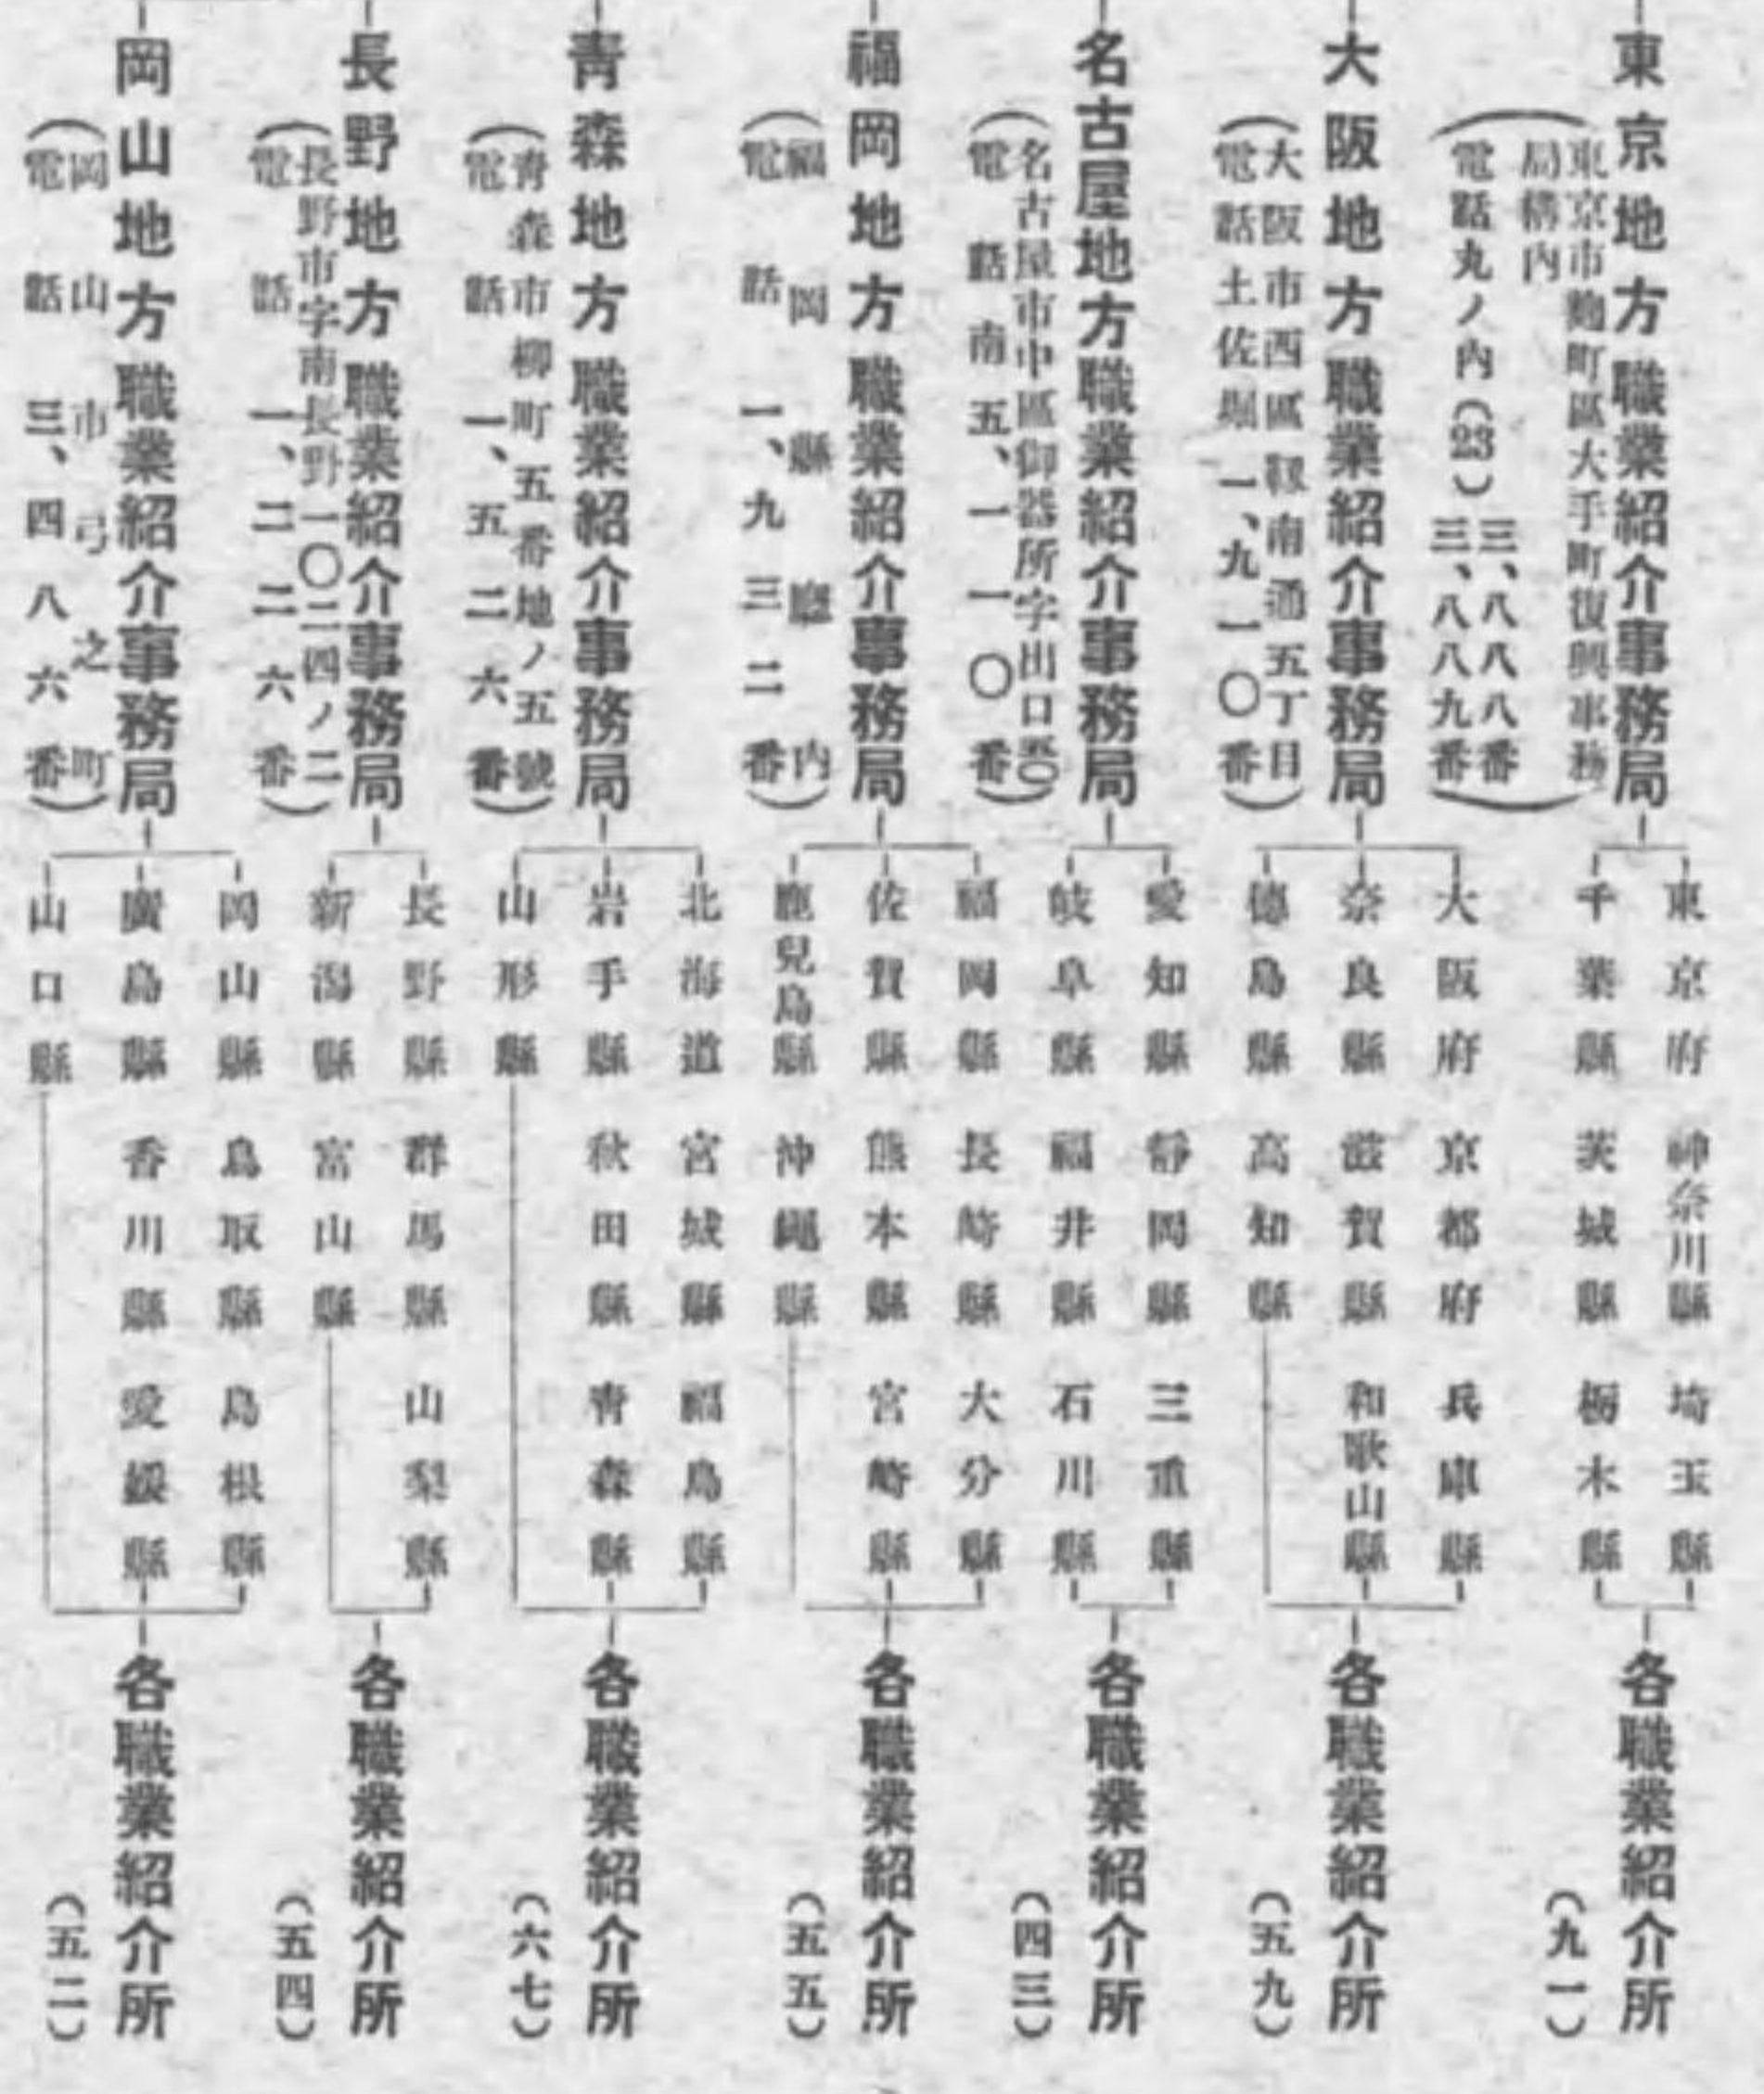 東京地方職業紹介事務局
(東京市麴町區大手町復興事務
局構内
電話丸ノ内(23)三、八八八番
三、八八九番)
東京府 神奈川縣 埼玉縣
千葉縣 茨城縣 栃木縣
各職業紹介所
(九一)
大阪地方職業紹介事務局
(大阪市西區靱南通五丁目
電話土佐堀一、九一〇番)
大阪府 京都府 兵庫縣
奈良縣 滋賀縣 和歌山縣
德島縣 高知縣
各職業紹介所
(五九)
名古屋地方職業紹介事務局
(名古屋市中區御器所字出口
電話南五、一一〇番)
愛知縣 靜岡縣 三重縣
岐阜縣 福井縣 石川縣
各職業紹介所
(四三)
福岡地方職業紹介事務局
(福岡縣廳内
電話一、九三二番)
福岡縣 長崎縣 大分縣
佐賀縣 熊本縣 宮崎縣
鹿兒島縣 沖繩縣
各職業紹介所
(五五)
青森地方職業紹介事務局
(青森市柳町五番地ノ五號
電話一、五二六番)
北海道 宮城縣 福島縣
岩手縣 秋田縣 青森縣
山形縣
各職業紹介所
(六七)
長野地方職業紹介事務局
(長野市字南長野一〇二四ノ二
電話一、二二六番)
長野縣 群馬縣 山梨縣
新潟縣 富山縣
各職業紹介所
(五四)
岡山地方職業紹介事務局
(岡山市弓之町
電話三、四八六番)
岡山縣 鳥取縣 島根縣
廣島縣 香川縣 愛媛縣
山口縣
各職業紹介所
(五二)